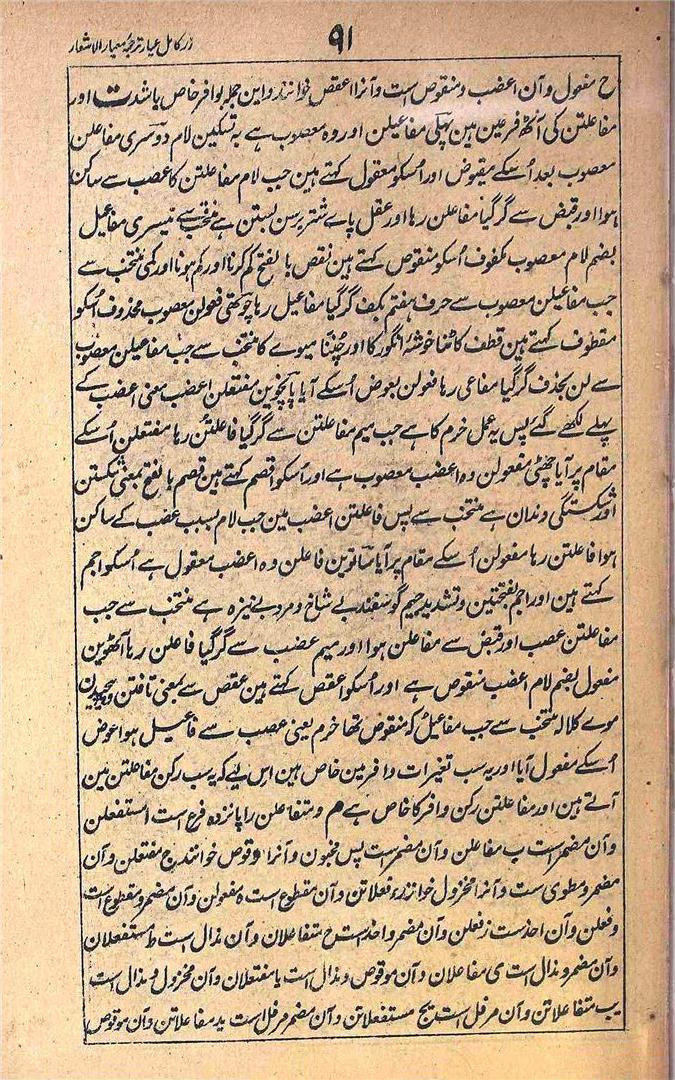 ۹۱
زر کامل عیار ترجمۂ معیار الاشعار
ح مفعول و آن اعضب و منقوص است و آنرا اعقص خوانند و این جملہ بوافر خاص باشد ت اور
مفاعلتن کی آٹھ فرعین ہین پہلی مفاعیلن اور وہ معصوب ہے بہ تسکین لام دوسری مفاعلن
معصوب بعد اُسکے مقبوض اور اُسکو معقول کہتے ہین جب لام مفاعلتن کا عصب سے ساکن
ہوا اور قبض سے گر گیا مفاعلن رہا اور عقل پاے شتر برسن بستن ہے منتخب سے تیسری مفاعیل
بضم لام معصوب مکفوف اُسکو منقوص کہتے ہین نقص بالفتح کم کرنا اور کم ہونا اور کمی منتخب سے
جب مفاعیلن معصوب سے حرف ہفتم بکف گر گیا مفاعیل رہا چوتھی فعولن معصوب محذوف اُسکو
مقطوف کہتے ہین قطف کاٹنا خوشۂ انگور کا اور چننا میوے کا منتخب سے جب مفاعیلن معصوب
سے لن بحذف گر گیا مفاعی رہا فعولن بعوض اُسکے آیا پانچوین مفتعلن اعضب معنی اعضب کے
پہلے لکھے گئے پس یہ عمل خرم کا ہے جب میم مفاعلتن سے گر گیا فاعلتن رہا مفتعلن اُسکے
مقام پر آیا چھٹی مفعولن وہ اعضب معصوب ہے اور اُسکو اقصم کہتے ہین قصم بالفتح بمعنی شکستن
اور شکستگی دندان ہے منتخب سے پس فاعلتن اعضب مین جب لام بسبب عضب کے ساکن
ہوا فاعلتن رہا مفعولن اُسکے مقام پر آیا ساتوین فاعلن وہ اعضب معقول ہے اُسکو اجم
کہتے ہین اور اجم بفتحتین و تشدید جیم گوسفند بے شاخ و مرد بے نیزہ ہے منتخب سے جب
مفاعلتن عصب اور قبض سے مفاعلن ہوا اور میم عضب سے گر گیا فاعلن رہا آٹھوین
مفعول بضم لام اعضب منقوص ہے اور اُسکو اعقص کہتے ہین عقص سے بمعنی تافتن و پیچیدن
موے کلالہ منتخب سے جب مفاعیل کہ منقوص تھا خرم یعنی عضب سے فاعیل ہوا عوض
اُسکے مفعول آیا اور یہ سب تغیرات وافر مین خاص ہین اس لیے کہ یہ سب رکن مفاعلتن مین
آتے ہین اور مفاعلتن رکن وافر کا خاص ہے م و متفاعلن را پانزدہ فرع است ا مستفعلن
و آن مضمر است ب مفاعلن و آن مضمر است پس مخبون و آنرا موقوص خوانند ج مفتعلن و آن
مضمر و مطوی ست و آنرا مخزول خوانند د فعلاتن و آن مقطوع است ہ مفعولن و آن مضمر و مقطوع است
و فعلن و آن احذست ز فعلن و آن مضمر و احذ است ح متفاعلان و آن مذال است ط مستفعلان
و آن مضمر و مذال است ی مفاعلان و آن موقوص و مذال است یا مفتعلان و آن مخزول و مذال است
یب متفاعلاتن و آن مرفل است یج مستفعلاتن و آن مضمر مرفل است ید مفاعلاتن و آن موقوص